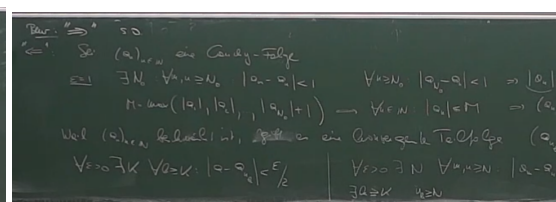 Bew: "⇒" SO
"⇐" Sei (a_n)_{n∈ℕ} eine Cauchy-Folge
ε=1 ∃N_0 ∀m,n≥N_0 |a_m-a_n|<1 ∀n≥N_0 |a_{N_0}-a_n|<1 ⇒ |a_n|
M= max(|a_1|,|a_2|, ,|a_{N_0}|+1) → ∀n∈ℕ |a_n|≤M ⇒ (a
Weil (a_n)_{n∈ℕ} beschränkt ist, gibt es eine konvergente Teilfolge (a_n
∀ε>0 ∃K ∀k≥K: |a-a_{n_k}|<ε/2 ∀ε>0 ∃N ∀m,n≥N |a_m-a_n
∃k≥K n_k≥N